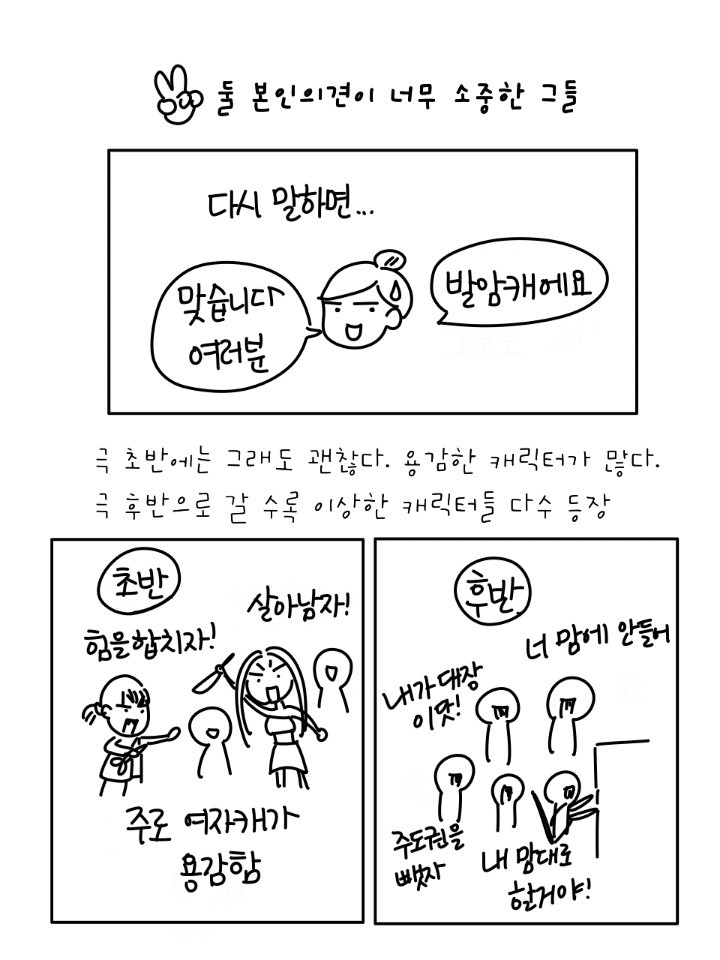 둘 본인의견이 너무 소중한 그들
다시 말하면...
맞습니다
여러분
발암캐에요
극 초반에는 그래도 괜찮다. 용감한 캐릭터가 많다.
극 후반으로 갈 수록 이상한 캐릭터들 다수 등장
초반
힘을합치자!
살아남자!
주로 여자캐가
용감함
후반
너 맘에 안들어
내가 대장
이맛!
주도권을
뺏자
내 맘대로
할거야!